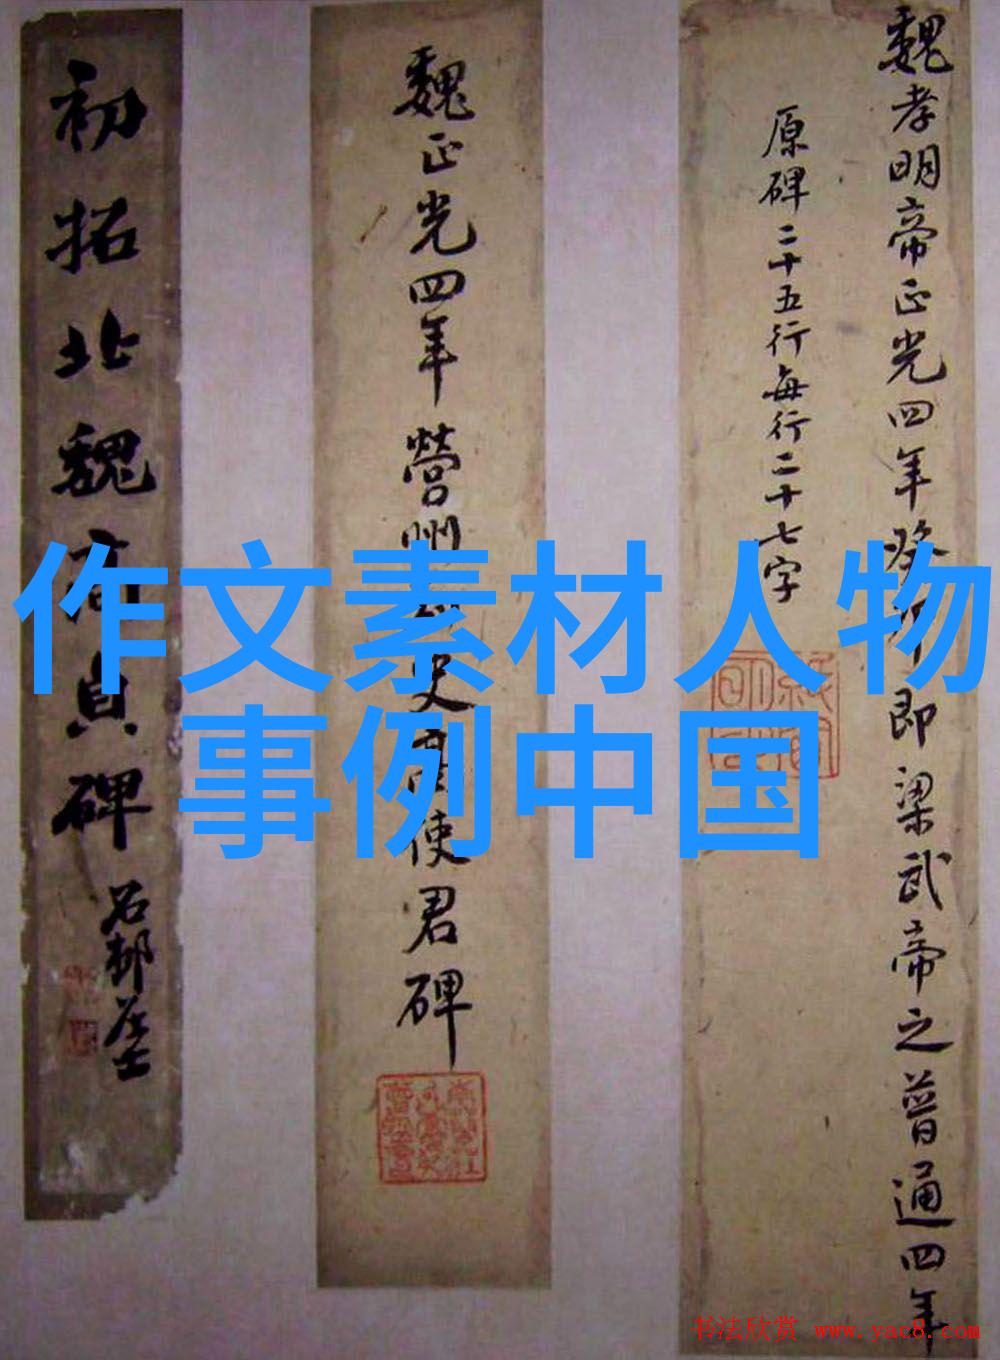 魏孝明帝正光四年癸卯即梁武帝之普通四年
原碑二十五行每行二十七字
魏正光四年營州刺史高使君碑
初拓北魏高貞碑
石邨居士
作文素材人物
事例中国
书法欣赏 www.yac8.com